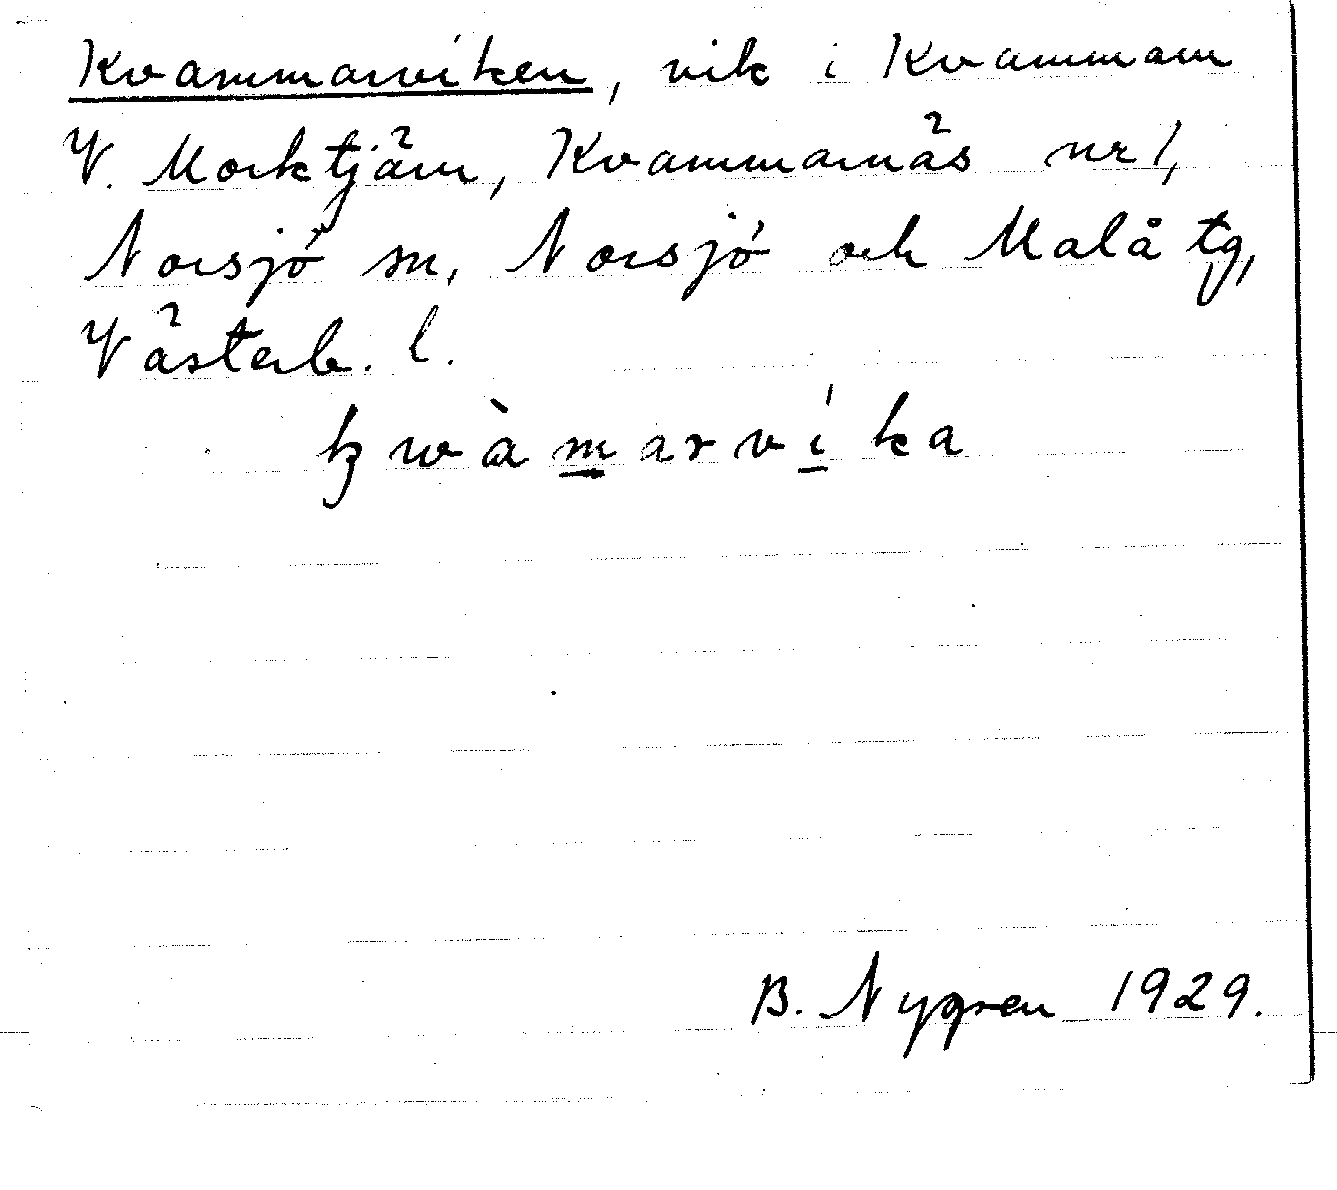 Kvammarviken, vik i Kvammarn
V. Morktjärn, Kvammarnäs nr 1,
Norsjö sn, Norsjö och Malå tg,
Västerb. l.
kwàmarvíka
B. Nygren 1929.